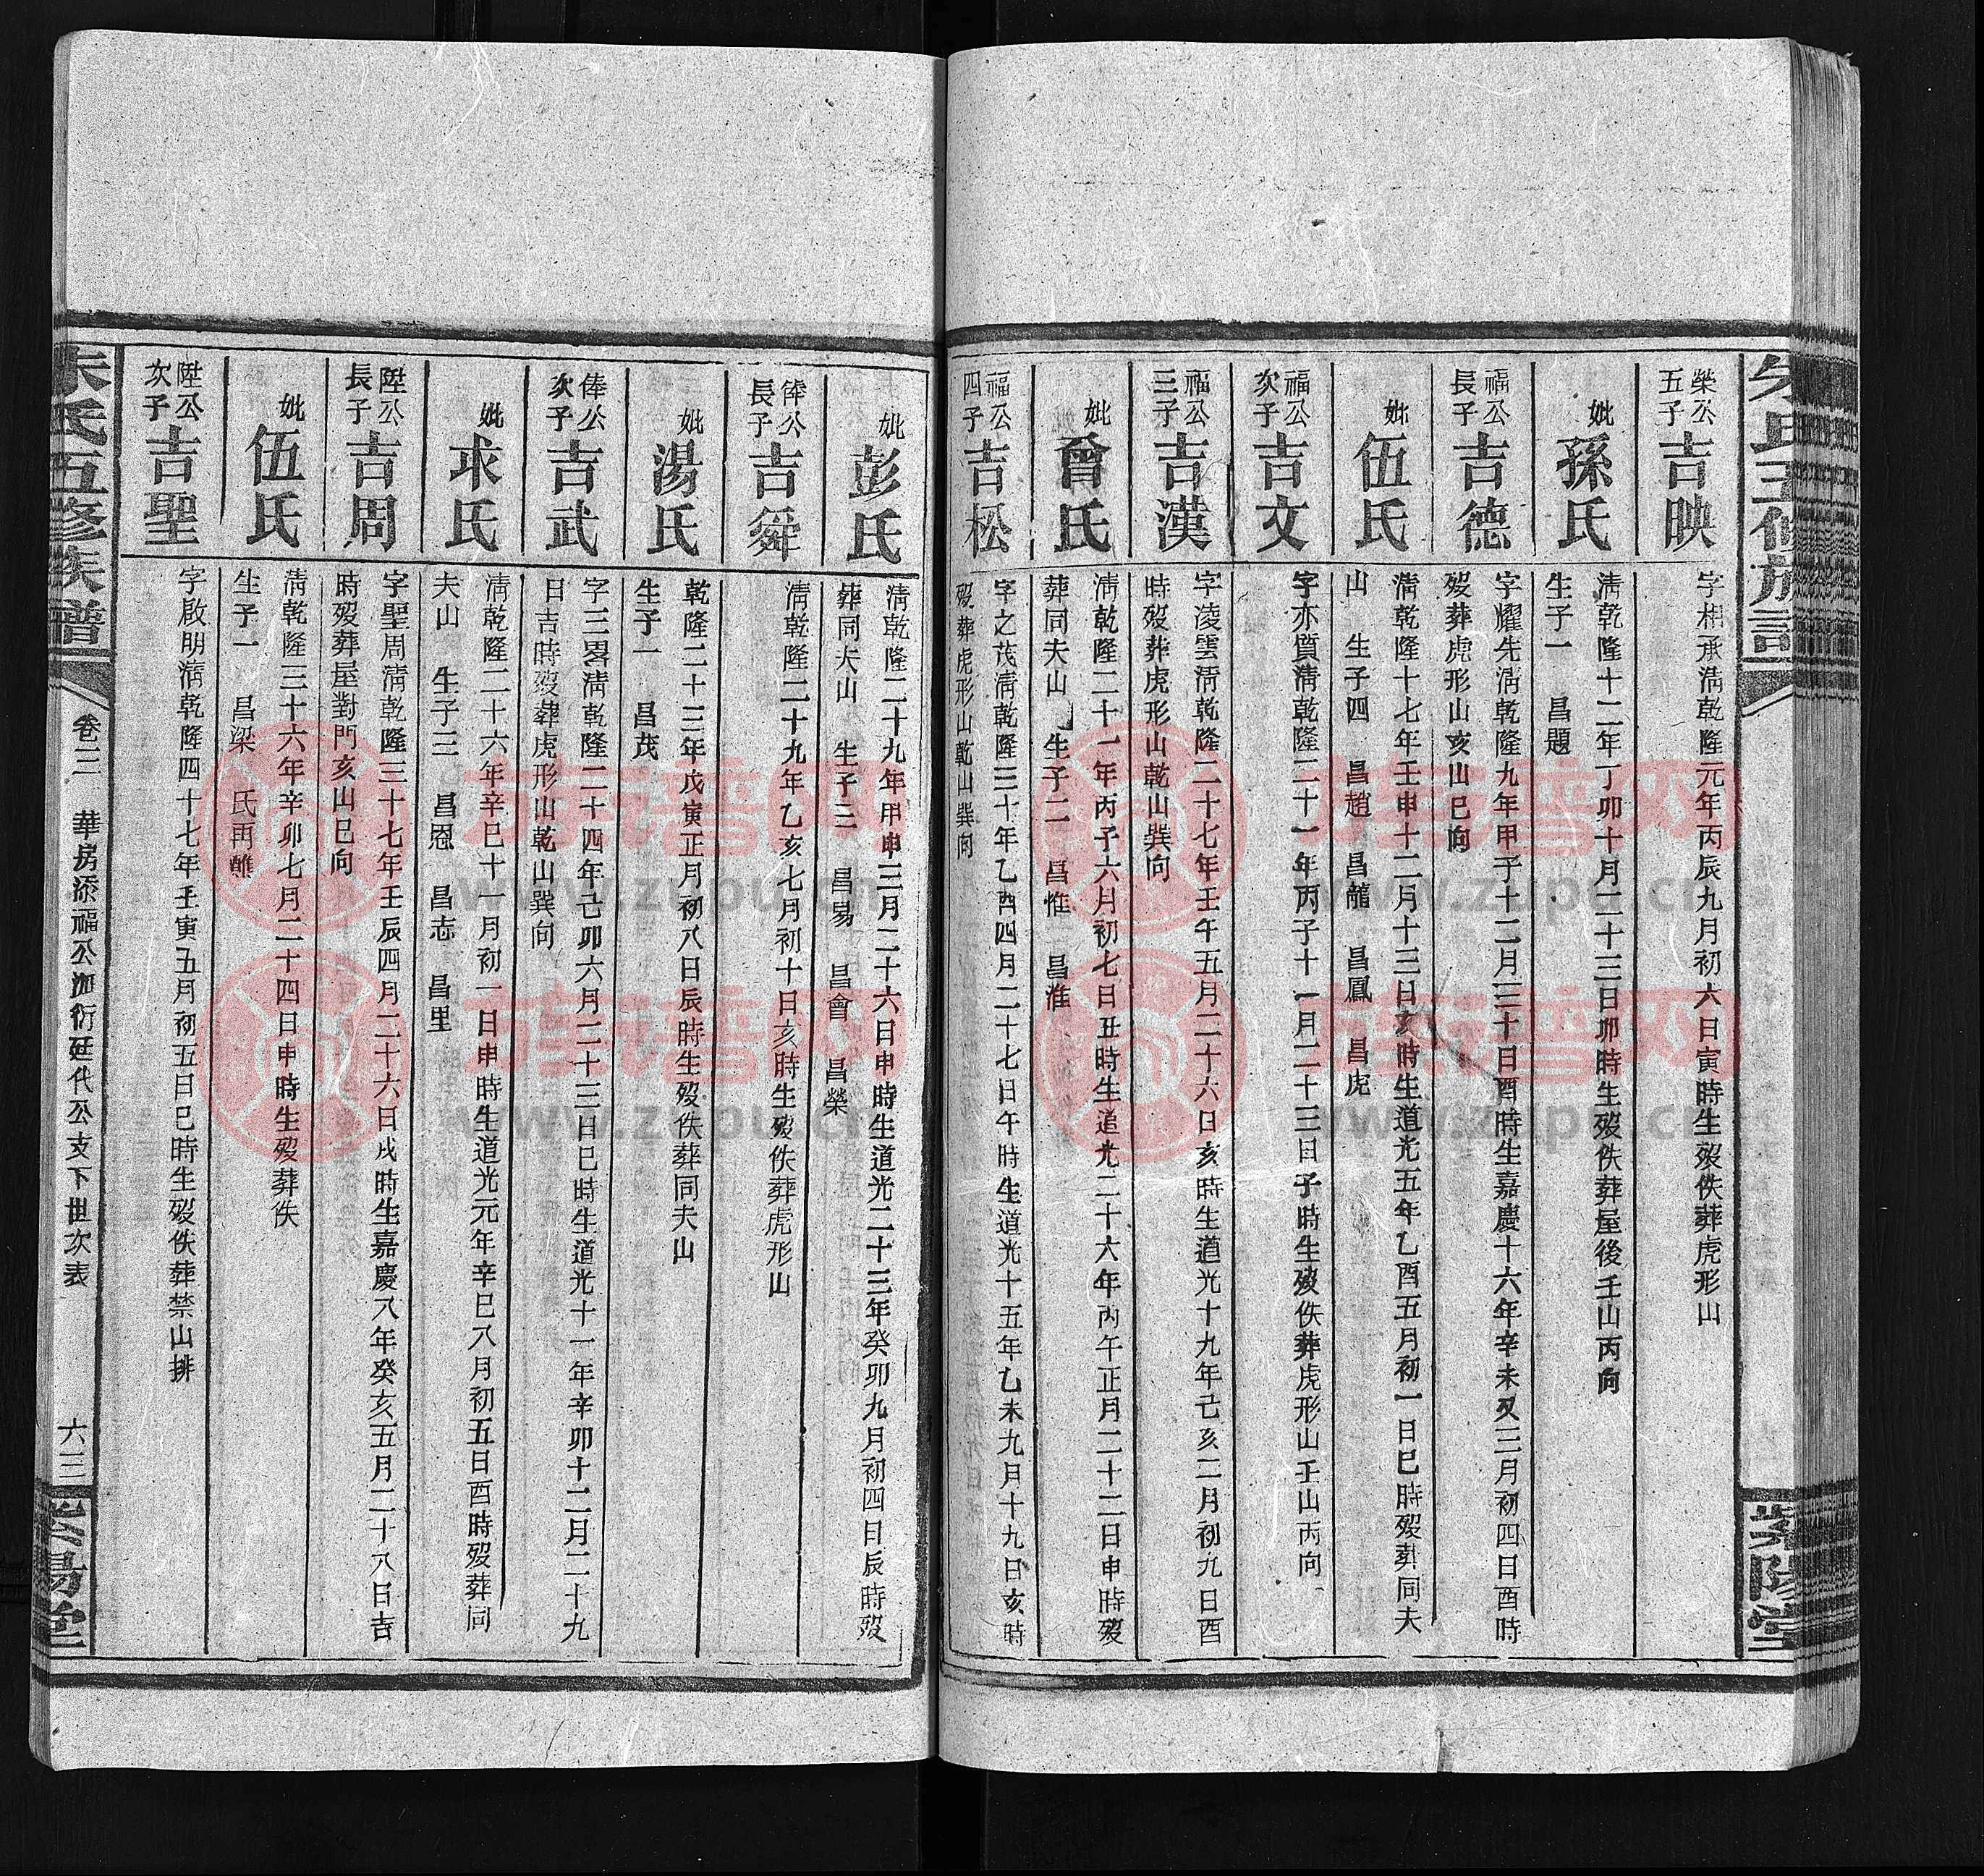 朱氏五修族譜
紫陽堂
榮公五子
吉映
字相承清乾隆元年丙辰九月初六日寅時生歿佚葬虎形山
妣孫氏
清乾隆十二年丁卯十月二十三日卯時生歿佚葬屋後壬山丙向
生子一　昌題
福公長子
吉德
字耀先清乾隆九年甲子十二月三十日酉時生嘉慶十六年辛未又三月初四日酉時
歿葬虎形山亥山巳向
妣伍氏
清乾隆十七年壬申十二月十三日亥時生道光五年乙酉五月初一日巳時歿葬同夫
山　生子四　昌趙　昌龍　昌鳳　昌虎
福公次子
吉文
字亦質清乾隆二十一年丙子十一月二十三日子時生歿佚葬虎形山壬山丙向
福公三子
吉漢
字凌雲清乾隆二十七年壬午五月二十六日亥時生道光十九年己亥二月初九日酉
時歿葬虎形山乾山巽向
妣曾氏
清乾隆二十一年丙子六月初七日丑時生道光二十六年丙午正月二十二日申時歿
葬同夫山　生子二　昌惟　昌淮
福公四子
吉松
字之茂清乾隆三十年乙酉四月二十七日午時生道光十五年乙未九月十九日亥時
歿葬虎形山乾山巽向
妣彭氏
清乾隆二十九年甲申三月二十六日申時生道光二十三年癸卯九月初四日辰時歿
葬同夫山　生子三　昌易　昌會　昌榮
俸公長子
吉舜
清乾隆二十九年乙亥七月初十日亥時生歿佚葬虎形山
妣湯氏
乾隆二十三年戊寅正月初八日辰時生歿佚葬同夫山
生子一　昌茂
俸公次子
吉武
字三畧清乾隆二十四年己卯六月二十三日巳時生道光十一年辛卯十二月二十九
日吉時歿葬虎形山乾山巽向
妣求氏
清乾隆二十六年辛巳十一月初一日申時生道光元年辛巳八月初五日酉時歿葬同
夫山　生子三　昌恩　昌志　昌里
陞公長子
吉周
字聖周清乾隆三十七年壬辰四月二十六日戌時生嘉慶八年癸亥五月二十八日吉
時歿葬屋對門亥山巳向
妣伍氏
清乾隆三十六年辛卯七月二十四日申時生歿葬佚
生子一　昌梁　氏再醮
陞公次子
吉聖
字啟明清乾隆四十七年壬寅五月初五日巳時生歿佚葬禁山排
朱氏五修族譜
卷三　華房添福公迦衍廷代公支下世次表
六三
紫陽堂
族譜网
www.zupu.cn
族譜网
www.zupu.cn
族譜网
www.zupu.cn
族譜网
www.zupu.cn